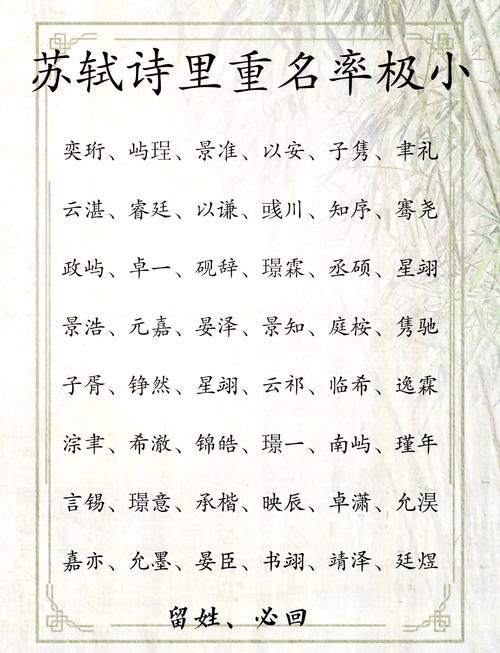 苏轼诗里重名率极小
奕珩、屿珵、景准、以安、子隽、聿礼
云湛、睿廷、以谦、彧川、知序、骞尧
政屿、卓一、砚辞、璟霖、丞硕、星翊
景浩、元嘉、晏泽、景知、庭桉、隽驰
子胥、铮然、星翊、云祁、临希、逸霖
淙聿、希澈、锦皓、璟一、南屿、瑾年
言锡、璟意、承楷、映辰、卓潇、允淏
嘉亦、允墨、晏臣、书翊、靖泽、廷煜
留姓、必回